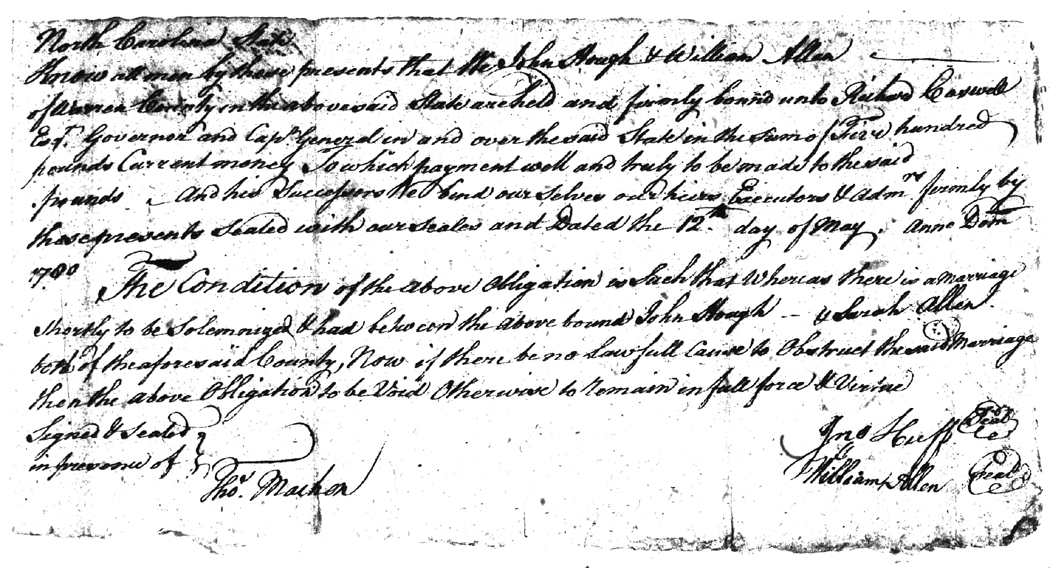 North Carolina State
Know all men by these presents that We John Hough & William Allen
of Warren County in the above said State are held and firmly bound unto Richard Caswell
Esqr. Governor and Capn. General in and over the said State in the sum of Five hundred
pounds Current money To which payment well and truly to be made to the said
pounds And his Successors We bind our selves our heirs Executors & Admrs firmly by
these presents Sealed with our seales and Dated the 12th day of May. Anno Dom
1780
The Condition of the above Obligation is Such that Whereas there is a marriage
shortly to be Solemnized & had between the above bound John Hough - & Sarah Allen
both of the aforesaid County, Now if there be no Lawfull Cause to Obstruct the said Marriage
then the above Obligation to be Void Otherwise to remain in full force & Virtue
Signed & Sealed
in presence of
Thos. Machen
Jno Huff Seal
William Allen Seal